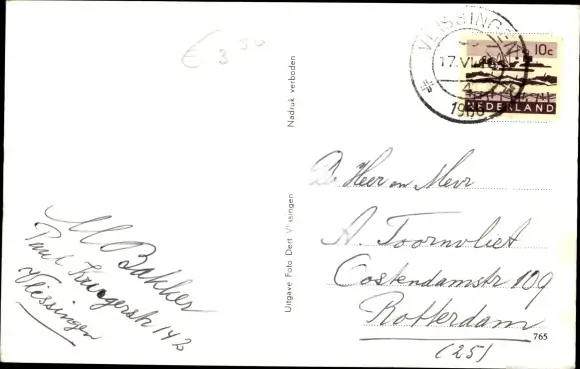 € 3 50
VLISSINGEN
17.VI.
4
196
10c
NEDERLAND
Nadruk verboden
Uitgave Foto Dert Vlissingen
De Heer en Mevr
A. Toornvliet
Oostendamstr 109
Rotterdam
(25)
765
M Bakker
Paul Krugerstr 142
Vlissingen